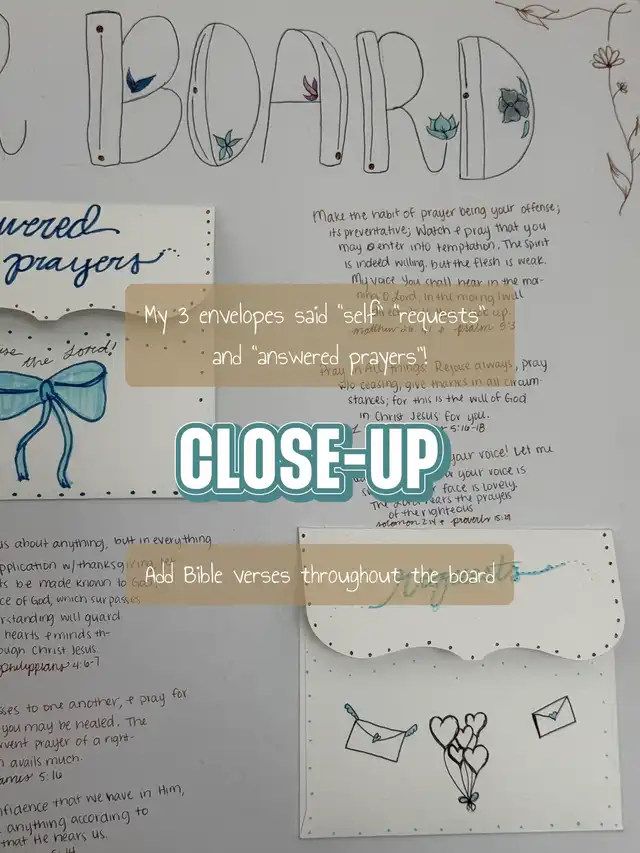 R BOARD
wered
prayers
the Lord!
Make the habit of prayer being your offense;
its preventative; Watch & pray that you
may o enter into temptation. The Spirit
is indeed willing, but the flesh is weak.
My voice You shall hear in the mor-
ning O Lord, In the morning I will
up.
psalm 5:3
My 3 envelopes said "self" "requests"
and "answered prayers"!
Pray in All things: Rejoice always, pray
ceasing, give thanks in all circum-
stances; for this is the will of God
in Christ Jesus for you.
5:16-18
CLOSE-UP
your voice! Let me
or your voice is
face is lovely.
The Lord hears the prayers
of the righteous
solomon 2:14 & proverbs 15:29
us about anything, but in everything
pplication w/ thanksgi
be made known to God,
ce of God, which surpasses
rstanding will guard
hearts & minds th-
ough Christ Jesus.
philippians 4:6-7
Add Bible verses throughout the board
requests
sses to one another, & pray for
you may be healed. The
vent prayer of a right-
avails much.
James 5:16
nfidence that we have in Him,
anything according to
that He hears us.
5:14